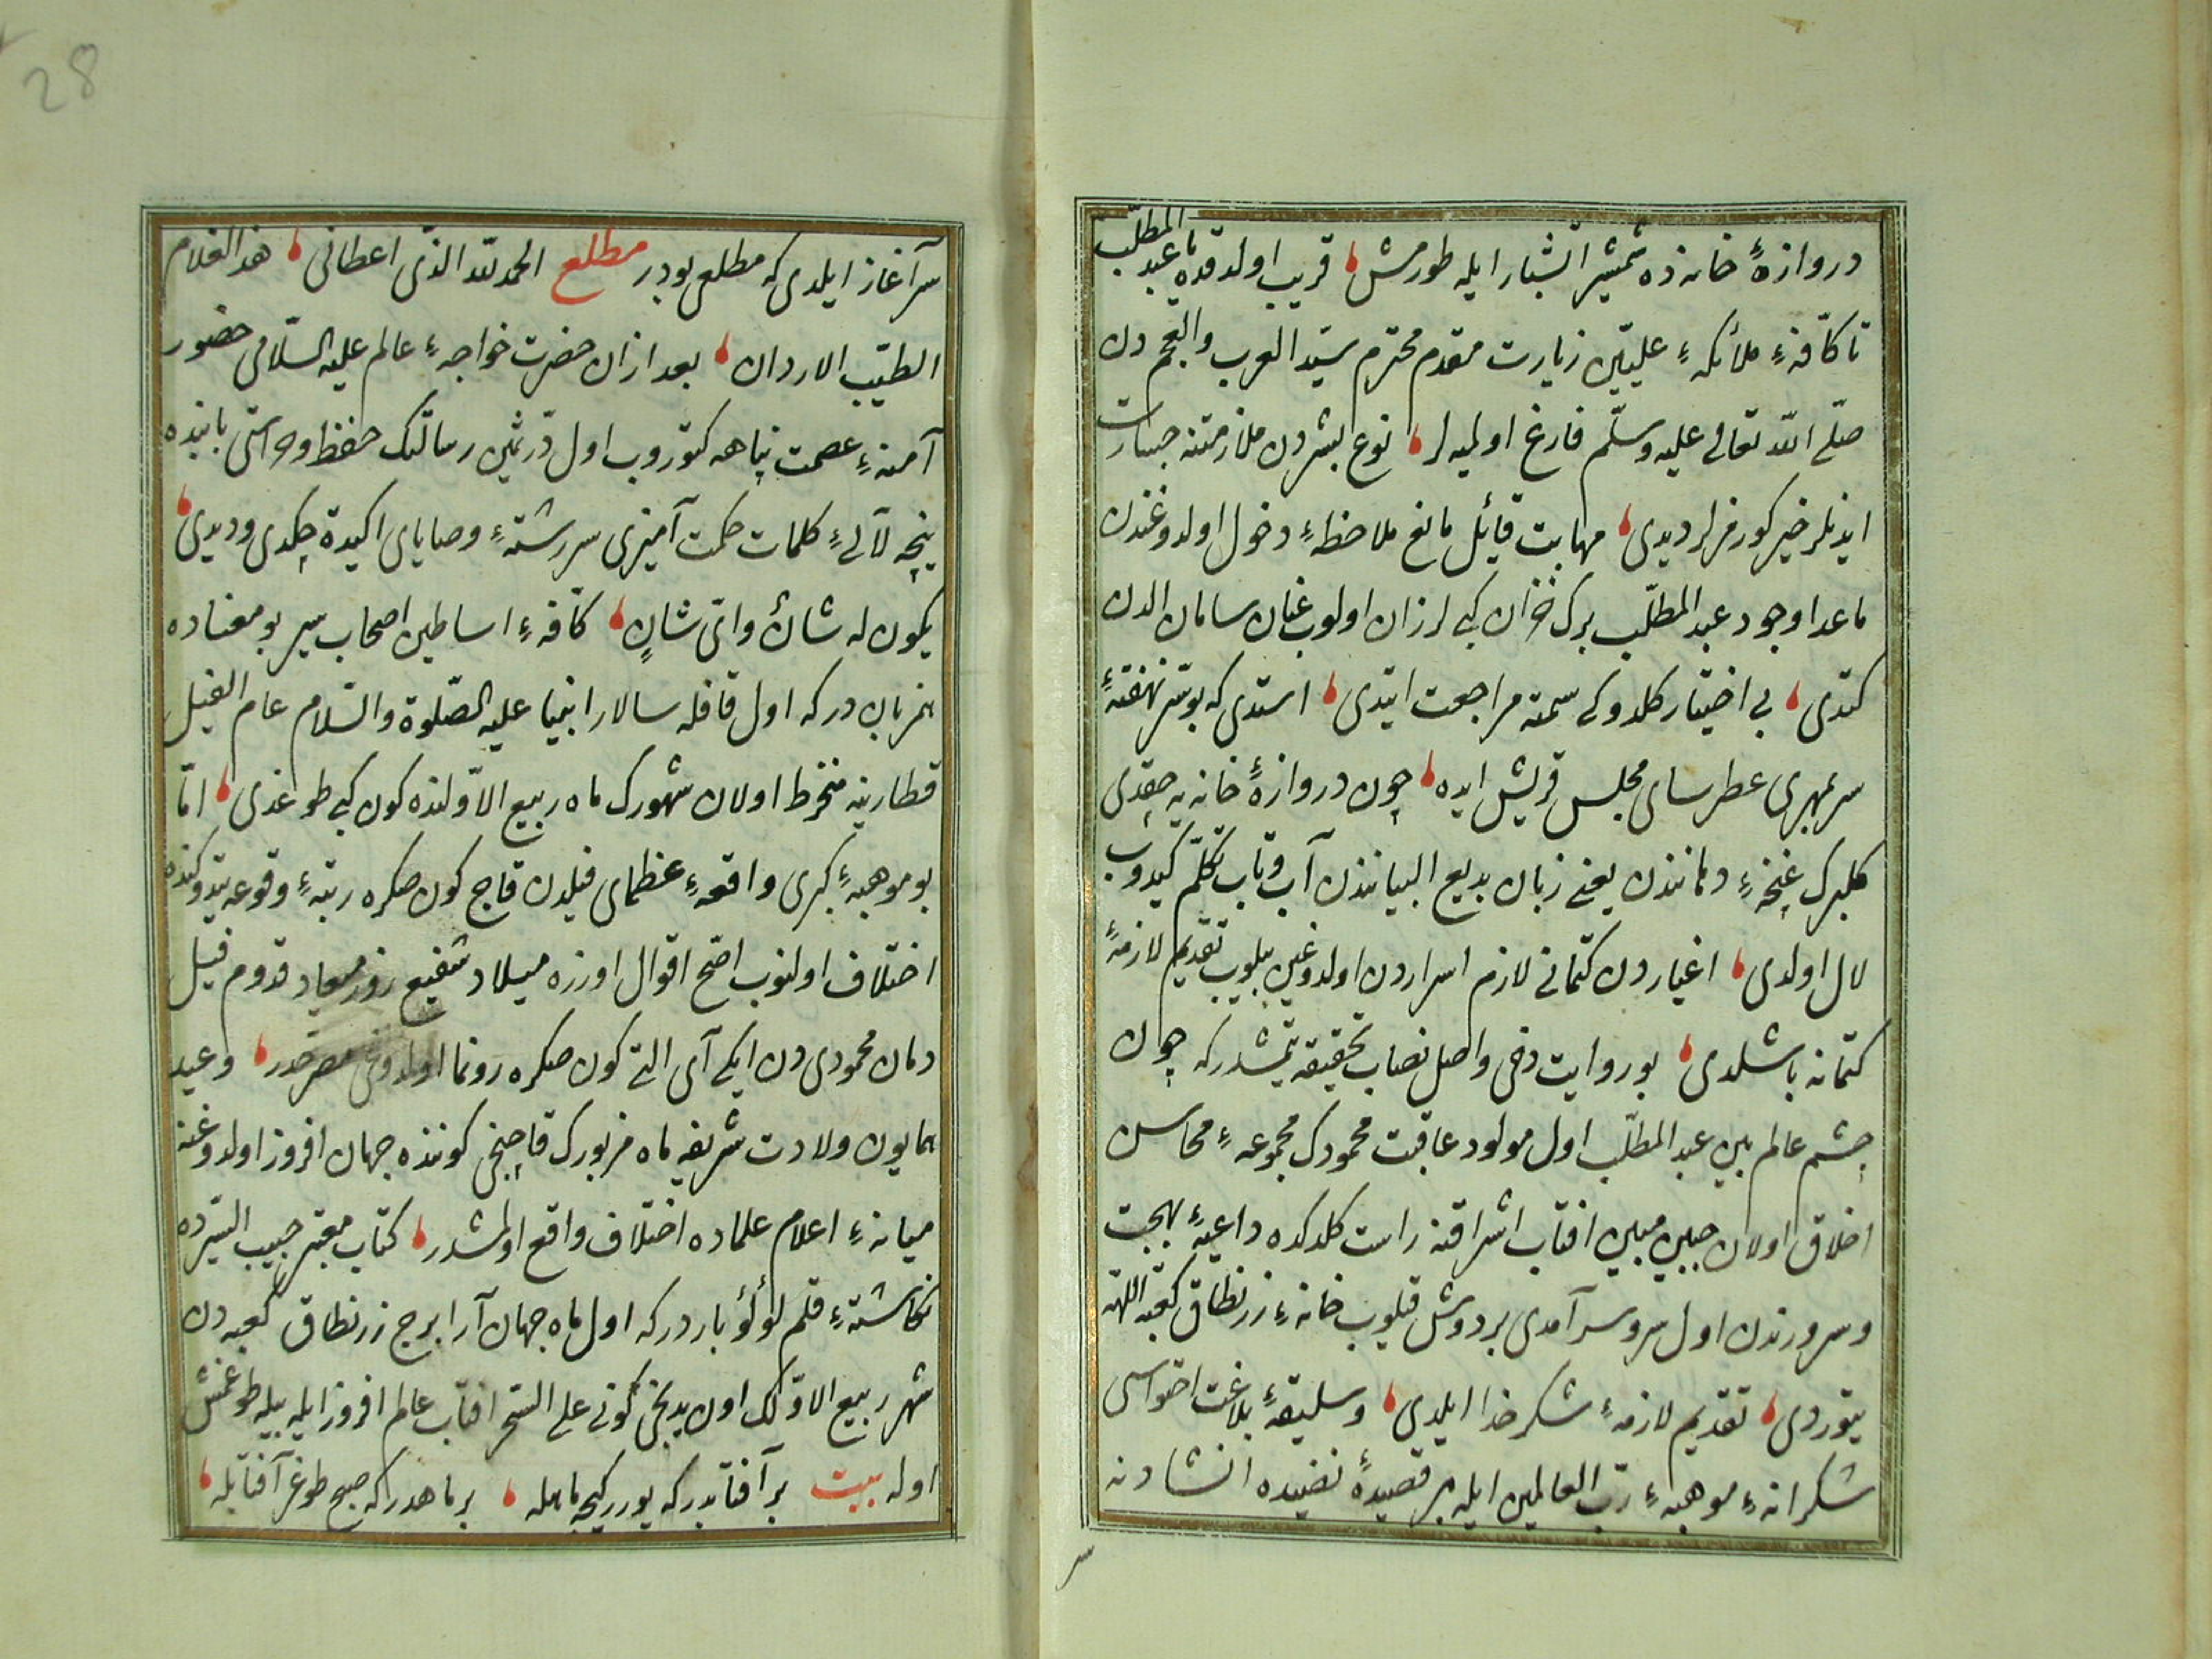 دروازهٔ خانه ده شمشیر آتشبار ایله طورمش قریب اولدقده یا عبد المطلّب
تا کافّهٔ ملائکهٔ علیّین زیارت مقدم محترم سیّد العرب والعجم دن
صلّی اللّه تعالی علیه وسلّم فارغ اولمیه لر نوع بشردن ملازمتنه جسارت
ایدنلر خیر کورمزلر دیدی مهابت قائل مانع ملاحظهٔ دخول اولدوغندن
ماعدا وجود عبد المطلّب برک خزان کبی لرزان اولوب عنان سامان الدن
کتدی بی اختیار کلدوکی سمته مراجعت ایتدی استدی که بو سرّ نهفتهٔ
سر بمهری عطرسای مجلس قریش ایده چون دروازهٔ خانه یه چقدی
کلبرک غنچهٔ دهانندن یعنی زبان بدیع البیانندن آب وتاب تکلّم کیدوب
لال اولدی اغیاردن کتمانی لازم اسراردن اولدوغین بیلوب تقدیم لازمهٔ
کتمانه باشلدی بو روایت دخی واصل نصاب تحقیقه یتمشدر که چون
چشم عالم بین عبد المطلّب اول مولود عاقبت محمودک مجموعهٔ محاسن
اخلاق اولان جبین مبین افتاب اشراقنه راست کلدکده داعیهٔ بهجت
وسرورندن اول سرو سرآمدی بر دوش قیلوب خانهٔ زر نطاق کعبة اللّهه
یتوردی تقدیم لازمهٔ شکر خدا ایلدی وسلیقهٔ بلاغت احتواسی
شکرانهٔ موهبهٔ ربّ العالمین ایله بر قصیدهٔ نضیده انشادنه
سر
28
سرآغاز ایلدی که مطلعی بودر مطلع الحمد للّه الذّی اعطانی هذا الغلام
الطیّب الاردان بعد ازان حضرت خواجهٔ عالم علیه السّلامی حضور
آمنهٔ عصمت پناهه کتوروب اول درّ ثمین رسالتک حفظ وحراستی بابنده
نیچه لآلیٔ کلمات حکمت آمیزی سررشتهٔ وصایای اکیدة چکدی ودیدی
یکون له شأن وایّ شانٍ کافّهٔ اساطین اصحاب سیر بو معناده
همزبان در که اول قافله سالار انبیا علیه الصّلوة والسّلام عام الفیل
قطارینه منخرط اولان شهورک ماه ربیع الاوّلنده کون کبی طوغدی امّا
بو موهبهٔ کبری واقعهٔ عظمای فیلدن قاچ کون صکره رتبهٔ وقوعه یتدوکنده
اختلاف اولنوب اصّح اقوال اوزره میلاد شفیع روز معاد قدوم فیل
دمان محمودی دن ایکی آی التی کون صکره رونما اولدوغی مصرحدر وعید
همایون ولادت شریفه ماه مزبورک قاچنجی کوننده جهان افروز اولدوغنه
میانهٔ اعلام علماده اختلاف واقع اولمشدر کتاب معتبر حبیب السّیرده
نکاشتهٔ قلم لؤلؤ باردر که اول ماه جهان آرا برج زر نطاق کعبه دن
شهر ربیع الاوّلک اون یدنجی کونی علی السّحر افتاب عالم افروز ایله بیله طوغمش
اوله بیت بر آفتابدر که یورر کیجه ماهله بر ماهدر که صبح طوغر آفتابله